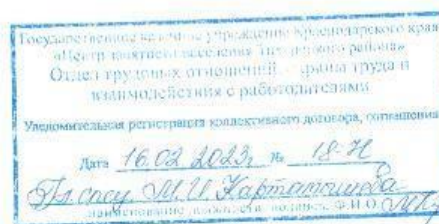 Государственное казенное учреждение Краснодарского края
«Центр занятости населения района»
Отдел трудовых отношений, охраны труда и
взаимодействия с работодателями
Уведомительная регистрация коллективного договора, соглашения
Дата 16.02.2023г № 18-Н
Гл. спец. М.И.
наименование должности, подпись, Ф.И.О.